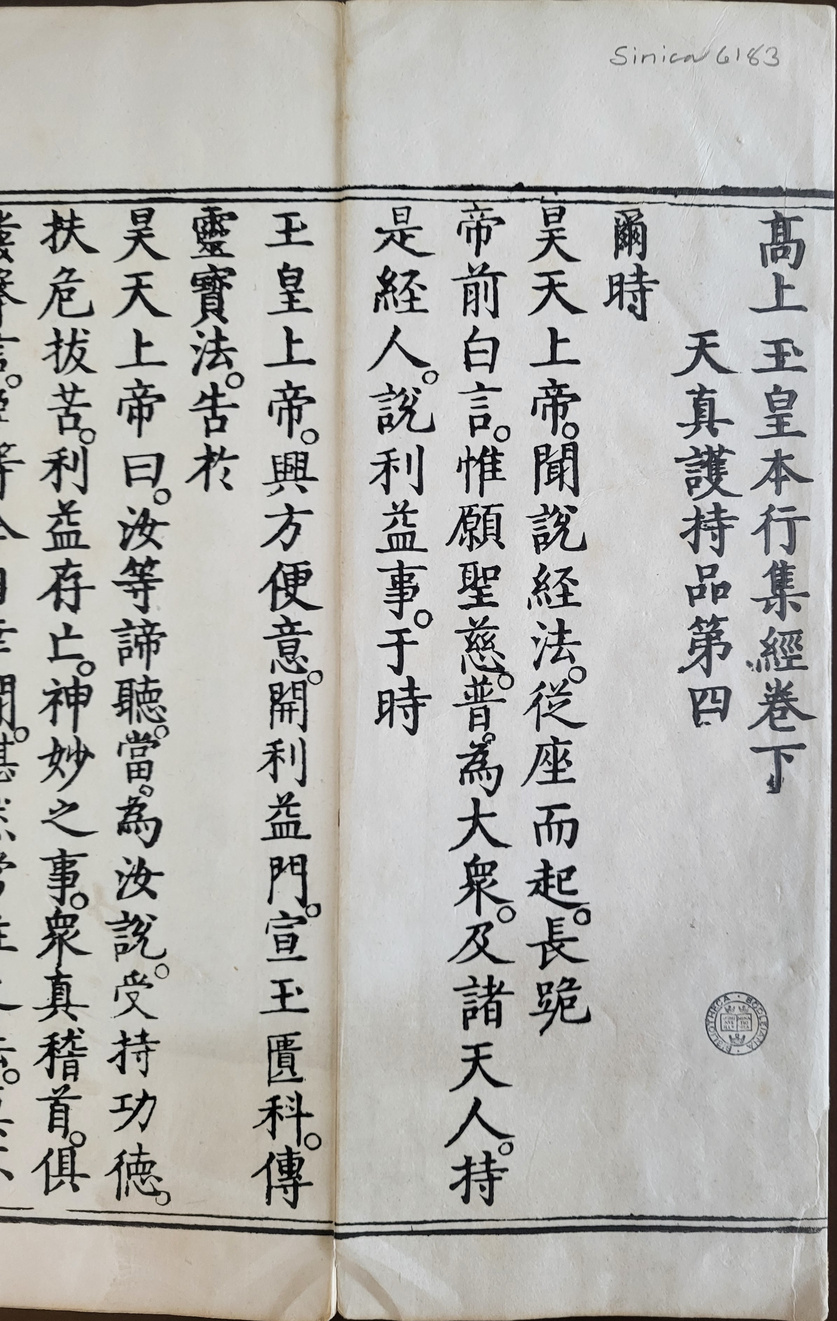 Sinica 6183
高上玉皇本行集經卷下
天真護持品第四
爾時
昊天上帝。聞說経法。從座而起。長跪
帝前白言。惟願聖慈。普。為大衆。及諸天人。持
是経人。說利益事。于時
玉皇上帝。興方便意。開利益門。宣玉匱科。傳
靈寶法。告於
昊天上帝曰。汝等諦聽。當。為汝說。受持功德。
扶危拔苦。利益存亡。神妙之事。衆真稽首。俱
BIBLIOTHECA BODLEIANA